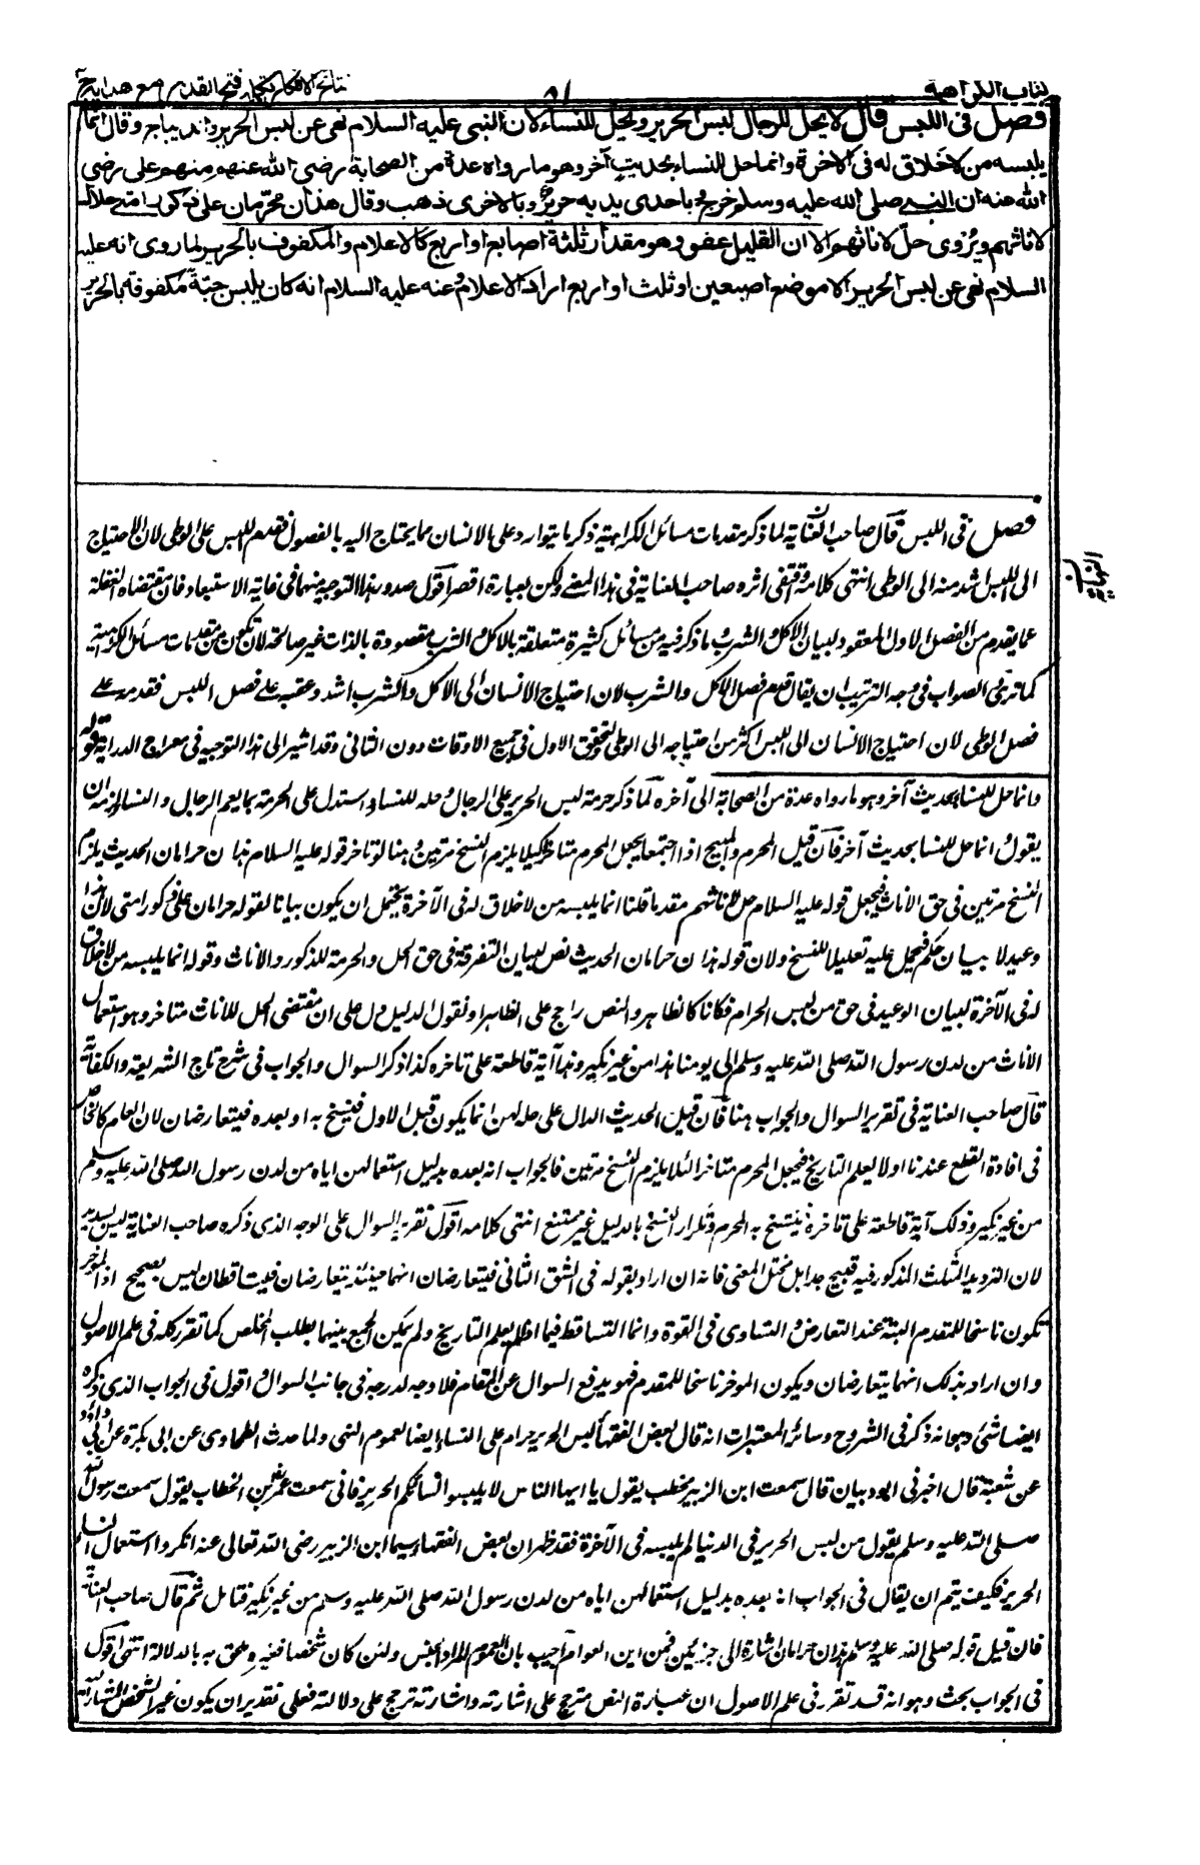 كتاب الكراهية ٨١ نتائج الافكار تكملة فتح القدير مع هداية ج
فصل فى اللبس قال لا يحل للرجال لبس الحرير ويحل للنساء لان النبى عليه السلام نهى عن لبس الحرير والديباج وقال انما
يلبسه من لا خلاق له فى الاخرة وانما حل للنساء بحديث آخر وهو ما رواه عدة من الصحابة رضى الله عنهم منهم على رضى
الله عنه ان النبى صلى الله عليه وسلم خرج وباحدى يديه حرير وبالاخرى ذهب وقال هذان محرمان على ذكور امتى حلال
لاناثهم ويروى حل لاناثهم الا ان القليل عفو وهو مقدار ثلثة اصابع او اربع كالاعلام والمكفوف بالحرير لما روى انه عليه
السلام نهى عن لبس الحرير الا موضع اصبعين او ثلث او اربع اراد الاعلام وعنه عليه السلام انه كان يلبس جبة مكفوفة بالحرير
فصل فى اللبس قال صاحب النهاية لما ذكر مقدمات مسائل الكراهية ذكر ما يتوارد على الانسان مما يحتاج اليه بالفصول فقدم اللبس على الوطى لان الاحتياج
الى اللبس اشد منه الى الوطى انتهى كلامه واقتفى اثره صاحب العناية فى هذا المعنى ولكن بعبارة اقصر اقول صدور هذا التوجيه منهما فى غاية الاستبعاد فان مقتضاه الغفلة
عما يقدم من الفصل الاول المعقود لبيان الاكل والشرب وما ذكر فيه من مسائل كثيرة متعلقة بالاكل والشرب مقصودة بالذات غير صالحة لان تكون من مقدمات مسائل الكراهية
كما ترى فالصواب فى وجه الترتيب ان يقال قدم فصل الاكل والشرب لان احتياج الانسان الى الاكل والشرب اشد وعقبه على فصل اللبس فقدمه على
فصل الوطى لان احتياج الانسان الى اللبس اكثر من احتياجه الى الوطى لتحقق الاول فى جميع الاوقات دون الثانى وقد اشير الى هذا التوجيه فى معراج الدراية قوله
وانما حل للنساء بحديث آخر وهو ما رواه عدة من الصحابة الى آخره لما ذكر حرمة لبس الحرير على الرجال وحله للنساء استدل على الحرمة بما يعم الرجال والنساء لزمه ان
يقول وانما حل للنساء بحديث آخر فان قيل المحرم والمبيح اذا اجتمعا يجعل المحرم متاخرا كيلا يلزم النسخ مرتين وهنا لو تاخر قوله عليه السلام هذان حرامان الحديث يلزم
النسخ مرتين فى حق الاناث فيجعل قوله عليه السلام حل لاناثهم مقدما قلنا انما يلبسه من لا خلاق له فى الآخرة يحتمل ان يكون بيانا لقوله حرامان على ذكور امتى لان هذا
وعيد لا بيان حكم فيحمل عليه تعليلا للنسخ ولان قوله هذان حرامان الحديث نص لبيان التفرقة فى حق الحل والحرمة للذكور والاناث وقوله انما يلبسه من لا خلاق
له فى الآخرة لبيان الوعيد فى حق من لبس الحرام فكانا كالظاهر والنص راجح على الظاهر او نقول الدليل دل على ان مقتضى الحل للاناث متاخر وهو استعمال
الاناث من لدن رسول الله صلى الله عليه وسلم الى يومنا هذا من غير نكير وهذا آية قاطعة على تاخره كذا ذكر السوال والجواب فى شرح تاج الشريعة والكفاية
قال صاحب العناية فى تقرير السوال والجواب هنا فان قيل الحديث الدال على حله لهن انما يكون قبل الاول فينسخ به او بعده فيتعارضان لان العام كالخاص
فى افادة القطع عندنا او لا يعلم التاريخ فيجعل المحرم متاخرا لئلا يلزم النسخ مرتين فالجواب انه بعده بدليل استعمالهن اياه من لدن رسول الله صلى الله عليه وسلم
من غير نكير وذلك آية قاطعة على تاخره فينتسخ به المحرم وتكرار النسخ بالدليل غير ممتنع انتهى كلامه اقول تقرير السوال على الوجه الذى ذكره صاحب العناية ليس بسديد
لان الترديد المثلث المذكور فيه قبيح جدا بل مختل المعنى فانه ان اراد بقوله فى الشق الثانى فيتعارضان انهما حينئذ يتعارضان فيتساقطان ليس بصحيح اذ الموخر
تكون ناسخا للمتقدم البتة عند التعارض والتساوى فى القوة وانما التساقط فيما اذا لم يعلم التاريخ ولم يمكن الجمع بينهما بطلب المخلص كما تقرر كله فى علم الاصول
وان اراد بذلك انهما يتعارضان ويكون الموخر ناسخا للمقدم فهو يدفع السوال عن المقام فلا وجه لدرجه فى جانب السوال واقول فى الجواب الذى ذكره
ايضا شئ وهو انه ذكر فى الشروح وسائر المعتبرات انه قال بعض الفقهاء لبس الحرير حرام على النساء ايضا لعموم النهى ولما حدث الطحاوى عن ابى بكرة عن ابى داود
عن شعبة قال اخبرنى ابو ذبيان قال سمعت ابن الزبير يخطب يقول يا ايها الناس لا يلبسوا نسائكم الحرير فانى سمعت عمر بن الخطاب يقول سمعت رسول الله
صلى الله عليه وسلم يقول من لبس الحرير فى الدنيا لم يلبسه فى الآخرة فقد ظهر ان بعض الفقهاء سيما ابن الزبير رضى الله تعالى عنه انكروا استعمال النساء
الحرير فكيف يتم ان يقال فى الجواب انه بعده بدليل استعمالهن اياه من لدن رسول الله صلى الله عليه وسلم من غير نكير فتامل ثم قال صاحب العناية
فان قيل قوله صلى الله عليه وسلم هذان حرامان اشارة الى جزئيين فمن اين العموم اجيب بان العموم المراد الجنس ولئن كان شخصا فغيره ملحق به بالدلالة انتهى اقول
فى الجواب بحث وهو انه قد تقرر فى علم الاصول ان عبارة النص ترجح على اشارته واشارته ترجح على دلالته فعلى تقدير ان يكون غير الشخص المشار اليه